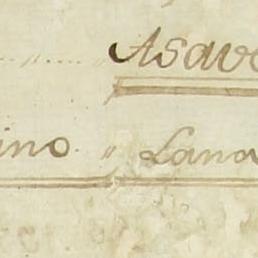 Asave
ino " Lana